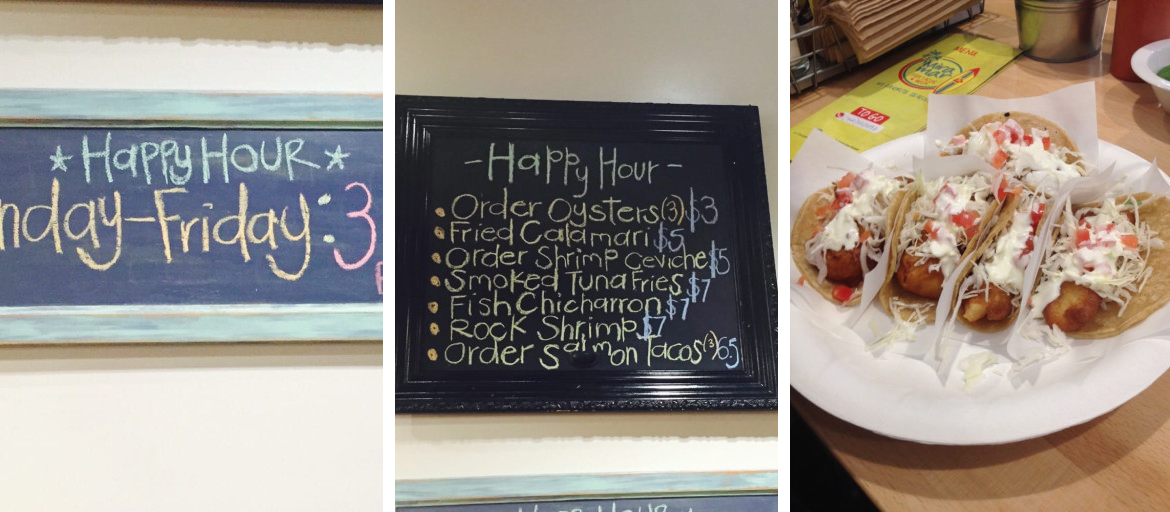 ★ Happy Hour ★
nday-Friday: 3
- Happy Hour -
Order Oysters (3) $3
Fried Calamari $5
Order Shrimp Ceviche $5
Smoked Tuna Fries $7
Fish Chicharron $7
Rock Shrimp $7
Order Salmon Tacos (3) 6.5
MENU
TO GO